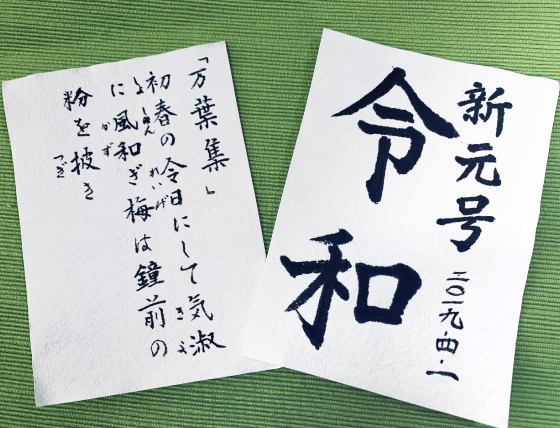 新元号 二〇一九・四・一
令和
「万葉集」
初春の令日にして気淑
に風和ぎ梅は鐘前の
粉を披き